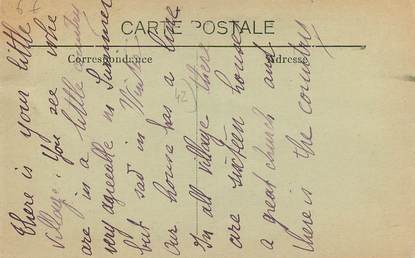 CARTE POSTALE
Correspondance
Adresse
There is your little
village. You see we
are in a little country
very agreeable in Summer
but sad in Winter
Our house has a little
In all village there
are sixteen houses
a great church and
there is the country